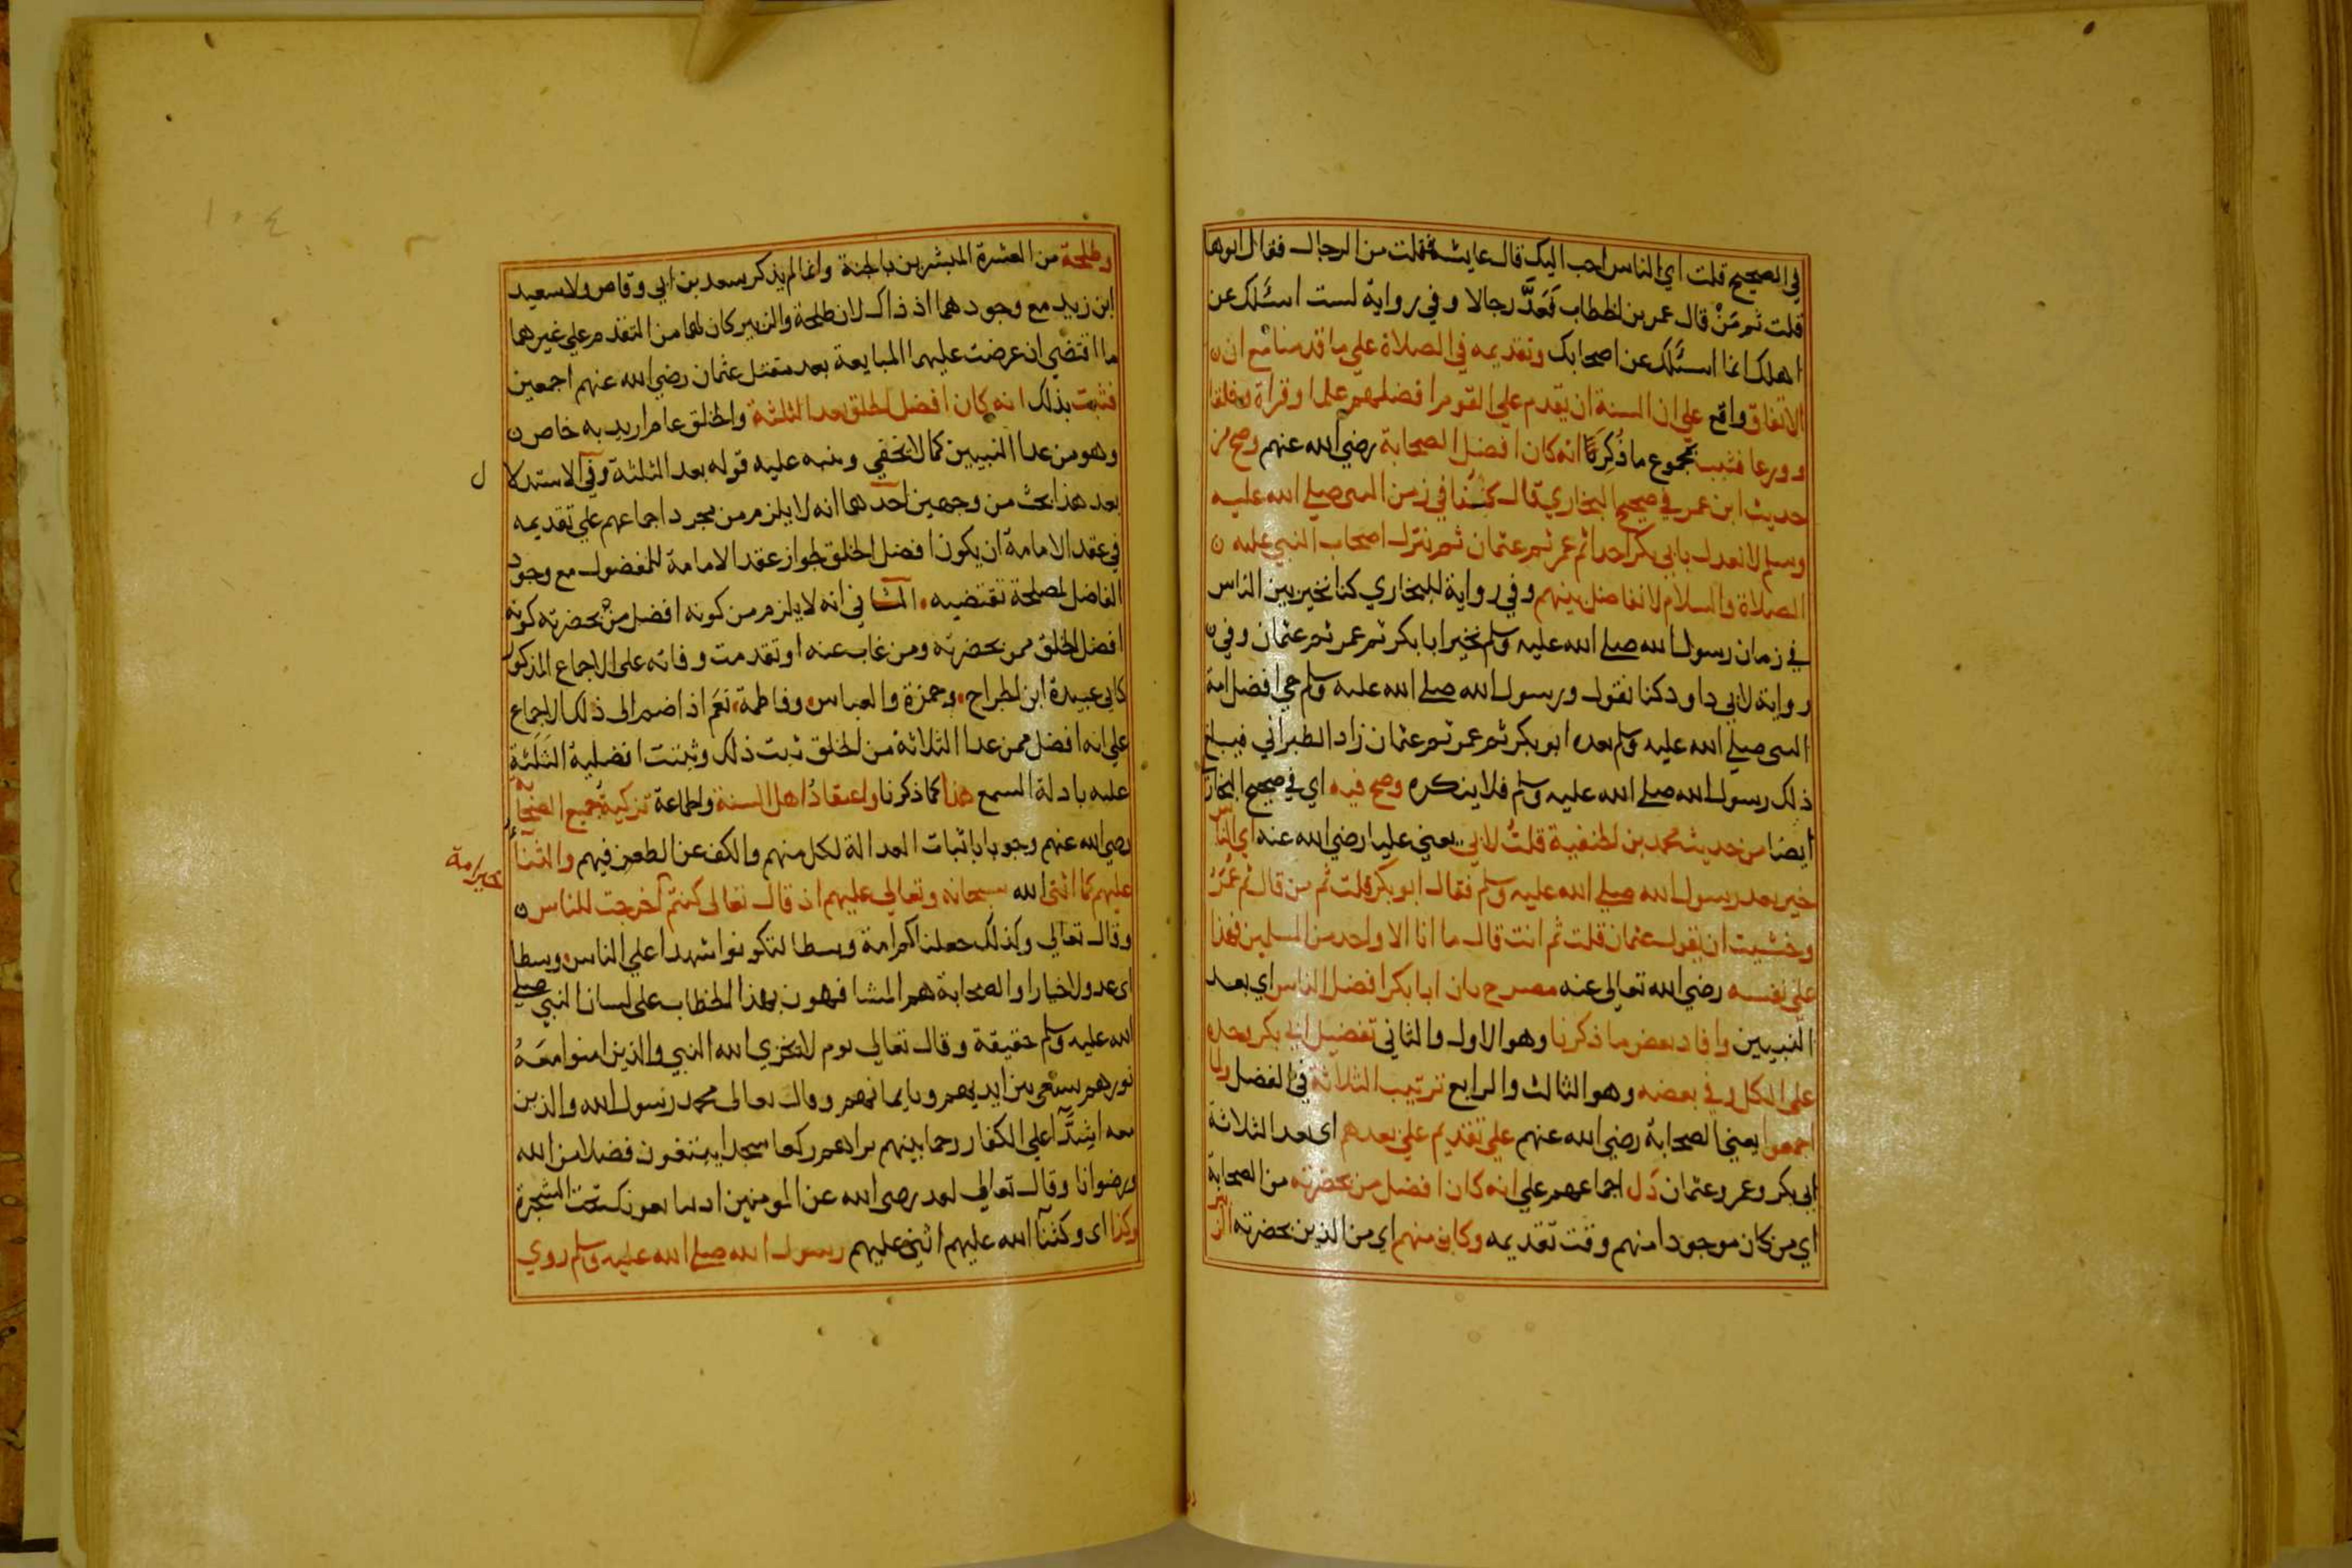 في الصحيح قلت اي الناس احب اليك قال عايشة فقلت من الرجال فقال ابوها
قلت ثم مَنْ قال عمر بن الخطاب فَعَدَّ رجالا وفي رواية لست اسئلك عن
اهلك انما اسئلك عن اصحابك وتقديمه في الصلاة علي ما قدمنا مع ان
الاتفاق واقع علي ان السنة ان يقدم علي القوم افضلهم علما وقراة وخلقا
وورعا فثبت بمجموع ما ذُكِرَ انه كان افضل الصحابة رضي الله عنهم وصح من
حديث ابن عمر في صحيح البخاري قال كنا في زمن النبي صلي الله عليه
وسلم لا نعدل بابي بكر احدا ثم عمر ثم عثمان ثم نترك اصحاب النبي عليه
الصلاة والسلام لا نفاضل بينهم وفي رواية للبخاري كنا نخير بين الناس
في زمان رسول الله صلي الله عليه وسلم نخير ابا بكر ثم عمر ثم عثمان وفي
رواية لابي داود كنا نقول ورسول الله صلي الله عليه وسلم حي افضل امة
النبي صلي الله عليه وسلم بعده ابو بكر ثم عمر ثم عثمان زاد الطبراني فيبلغ
ذلك رسول الله صلي الله عليه وسلم فلا ينكره وصح فيه اي في صحيح البخاري
ايضا من حديث محمد بن الحنفية قلتُ لابي يعني عليا رضي الله عنه اي الناس
خير بعد رسول الله صلي الله عليه وسلم فقال ابو بكر قلت ثم من قال ثم عُمَرُ
وخشيت ان يقول عثمان قلت ثم انت قال ما انا الا واحد من المسلمين فهذا
علي نفسه رضي الله تعالى عنه مصرح بان ابا بكر افضل الناس اي بعد
النبيين وافاد بعض ما ذكرنا وهو الاول والثاني تفضيل ابي بكر وحده
علي الكل وفي بعضه وهو الثالث والرابع ترتيب الثلاثة في الفضل ولما
اجمعوا يعني الصحابة رضي الله عنهم علي تقديم علي بعدهم اي بعد الثلاثة
ابي بكر وعمر وعثمان دَل اجماعهم علي انه كان افضل من بحضرته من الصحابة
اي من كان موجودا منهم وقت تقديمه وكان منهم اي من الذين بحضرته الزبير
وطلحة من العشرة المبشرين بالجنة وانما لم يذكر سعد بن ابي وقاص ولا سعيد
ابن زيد مع وجودهما اذ ذاك لان طلحة والزبير كان لهما من التقدم علي غيرهما
ما اقتضي ان عرضت عليهما المبايعة بعد مقتل عثمان رضي الله عنهم اجمعين
فثبت بذلك انه كان افضل الخلق بعد الثلثة والخلق عام اريد به خاص
وهو من عدا النبيين كما لا يخفي ونبه عليه قوله بعد الثلثة وفي الاستدلا
ل
بعد هذا بحث من وجهين احدهما انه لا يلزم من مجرد اجماعهم علي تقديمه
في عقد الامامة ان يكون افضل الخلق لجواز عقد الامامة للمفضول مع وجود
الفاضل لمصلحة تقتضيه الثاني انه لا يلزم من كونه افضل من بحضرته كونه
افضل الخلق ممن بحضرته ومن غاب عنه او تقدمت وفاته على الاجماع المذكور
كابي عبيدة ابن الجراح وحمزة والعباس وفاطمة نعم اذا ضم الى ذلك الاجماع
علي انه افضل ممن عدا الثلاثة من الخلق ثبت ذلك وثبتت افضلية الثلثة
عليه بادلة السمع هذا كما ذكرنا واعتقادُ اهل السنة والجماعة تزكية جميع الصحابة
رضي الله عنهم وجوبا باثبات العدالة لكل منهم والكف عن الطعن فيهم والثنآءُ
عليهم كما اثنى الله سبحانه وتعالى عليهم اذ قال تعالى كنتم اخرجت للناس
خير امة
وقال تعالي وكذلك جعلناكم امة وسطا لتكونوا شهدا علي الناس وسطا
اي عدولا خيارا والصحابة هم المشافهون بهذا الخطاب على لسان النبي صلي
الله عليه وسلم حقيقة وقال تعالي يوم لا يخزي الله النبي والذين امنوا معه
نورهم يسعى بين ايديهم وبايمانهم وقال تعالى محمد رسول الله والذين
معه اشِدَّآ علي الكفار رحما بينهم تراهم ركعا سجدا يبتغون فضلا من الله
ورضوانا وقال تعالي لقد رضى الله عن المومنين اذ يبايعونك تحت الشجرة
وكذا اى وكثنآ الله عليهم اثني عليهم رسول الله صلي الله عليه وسلم روي
١٠٤